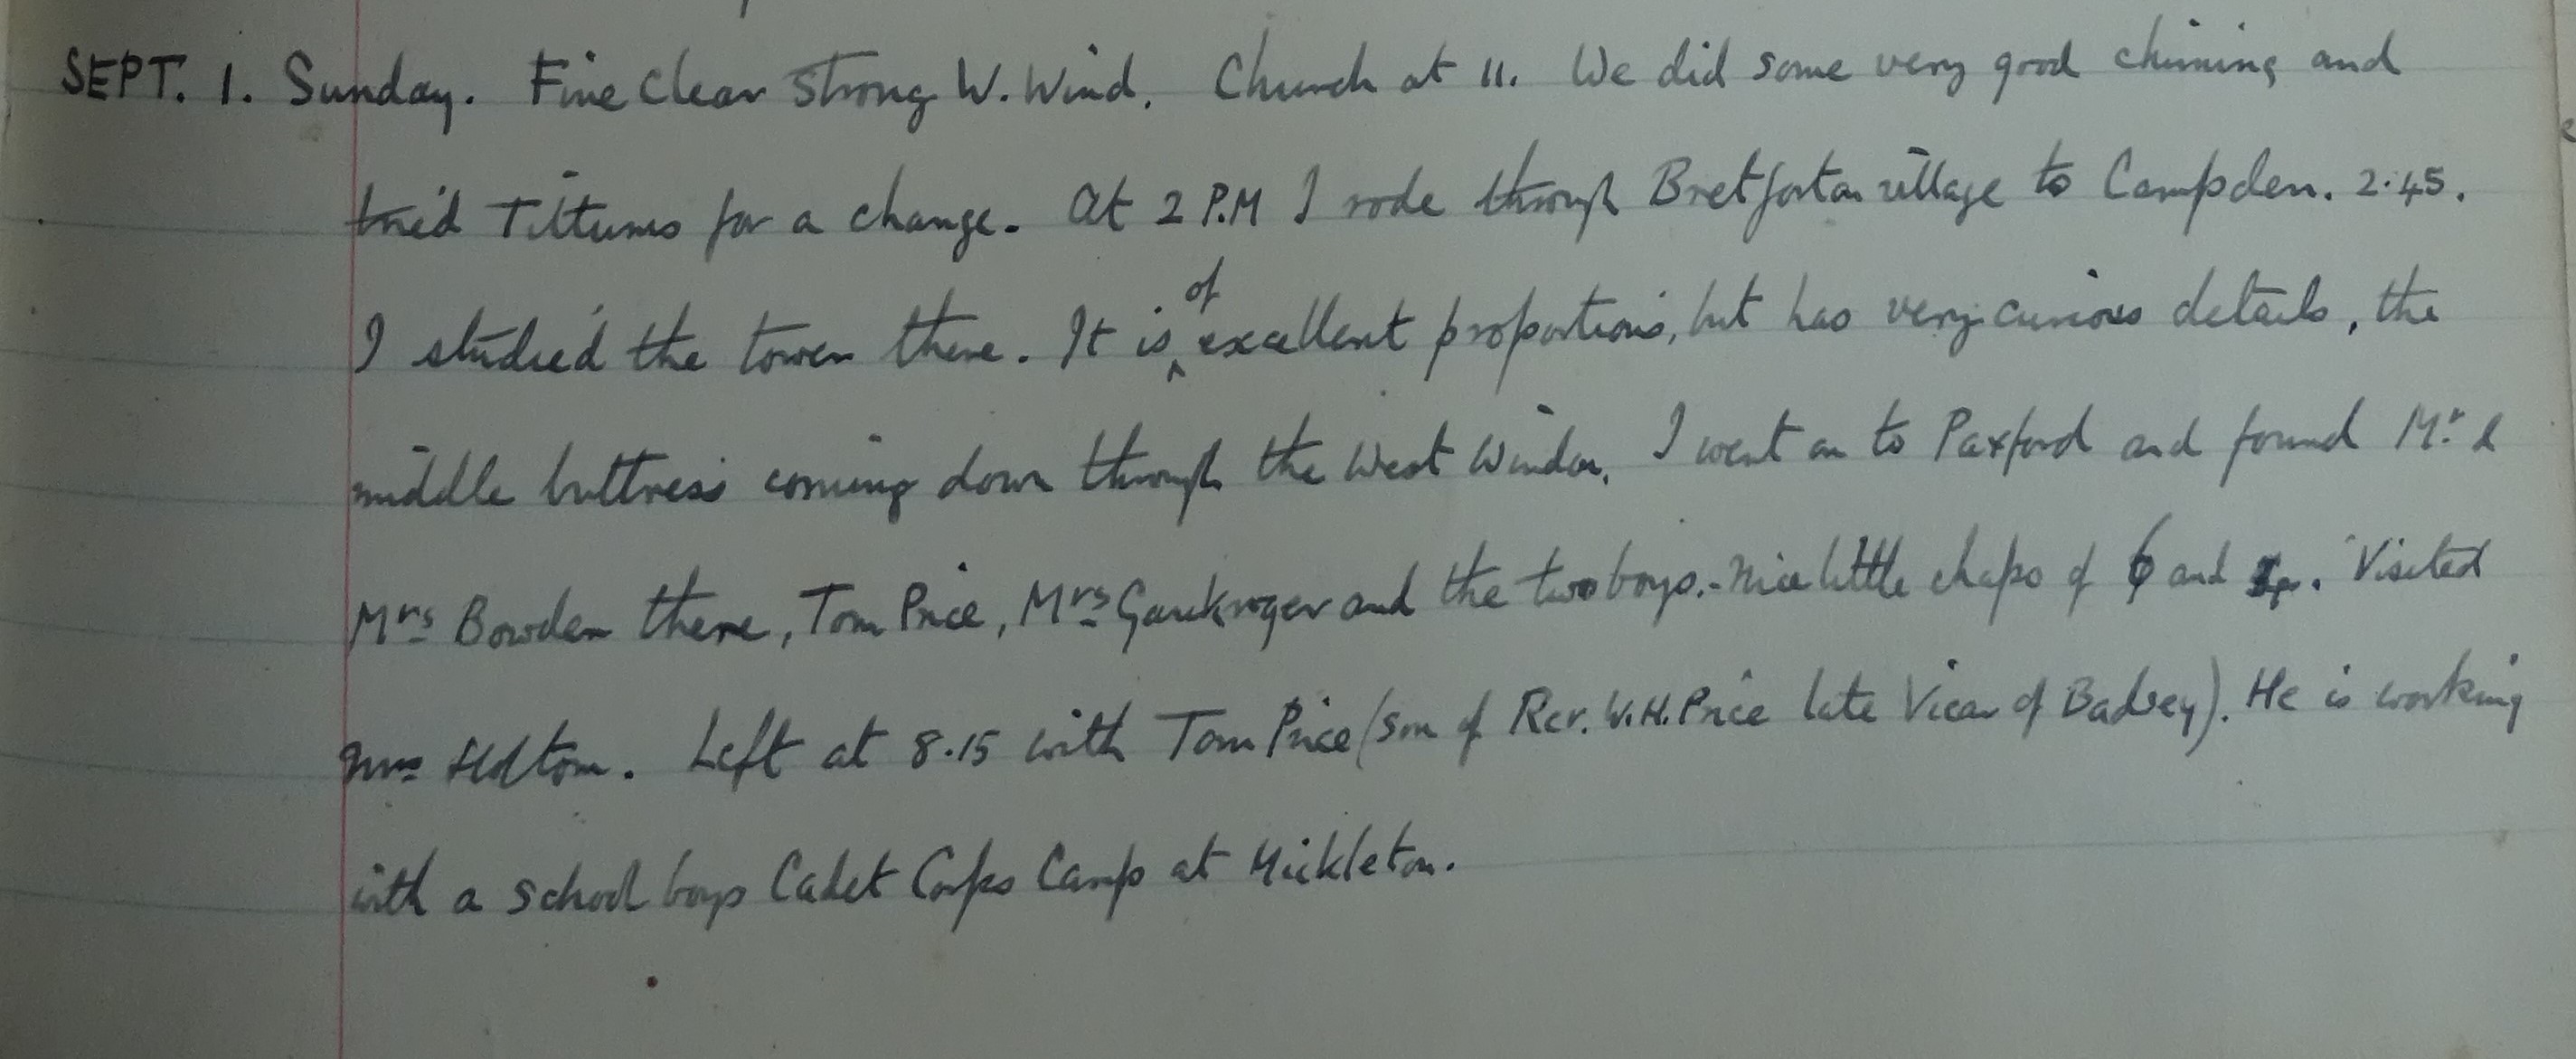 SEPT. 1. Sunday. Fine Clear Strong W. Wind. Church at 11. We did some very good chiming and
tried Tittums for a change. At 2 P.M I rode through Bretforton village to Campden. 2.45.
I studied the tower there. It is of excellent proportions, but has very curious details, the
middle buttress coming down through the West Window. I went on to Paxford and found Mr. &
Mrs Bowden there, Tom Price, Mrs Gaukroger and the two boys. - Nice little chaps of 6 and . Visited
Mrs Holtom. Left at 8.15 with Tom Price (son of Rev. W.H. Price late Vicar of Badsey). He is working
with a school boys Cadet Corps Camp at Mickleton.